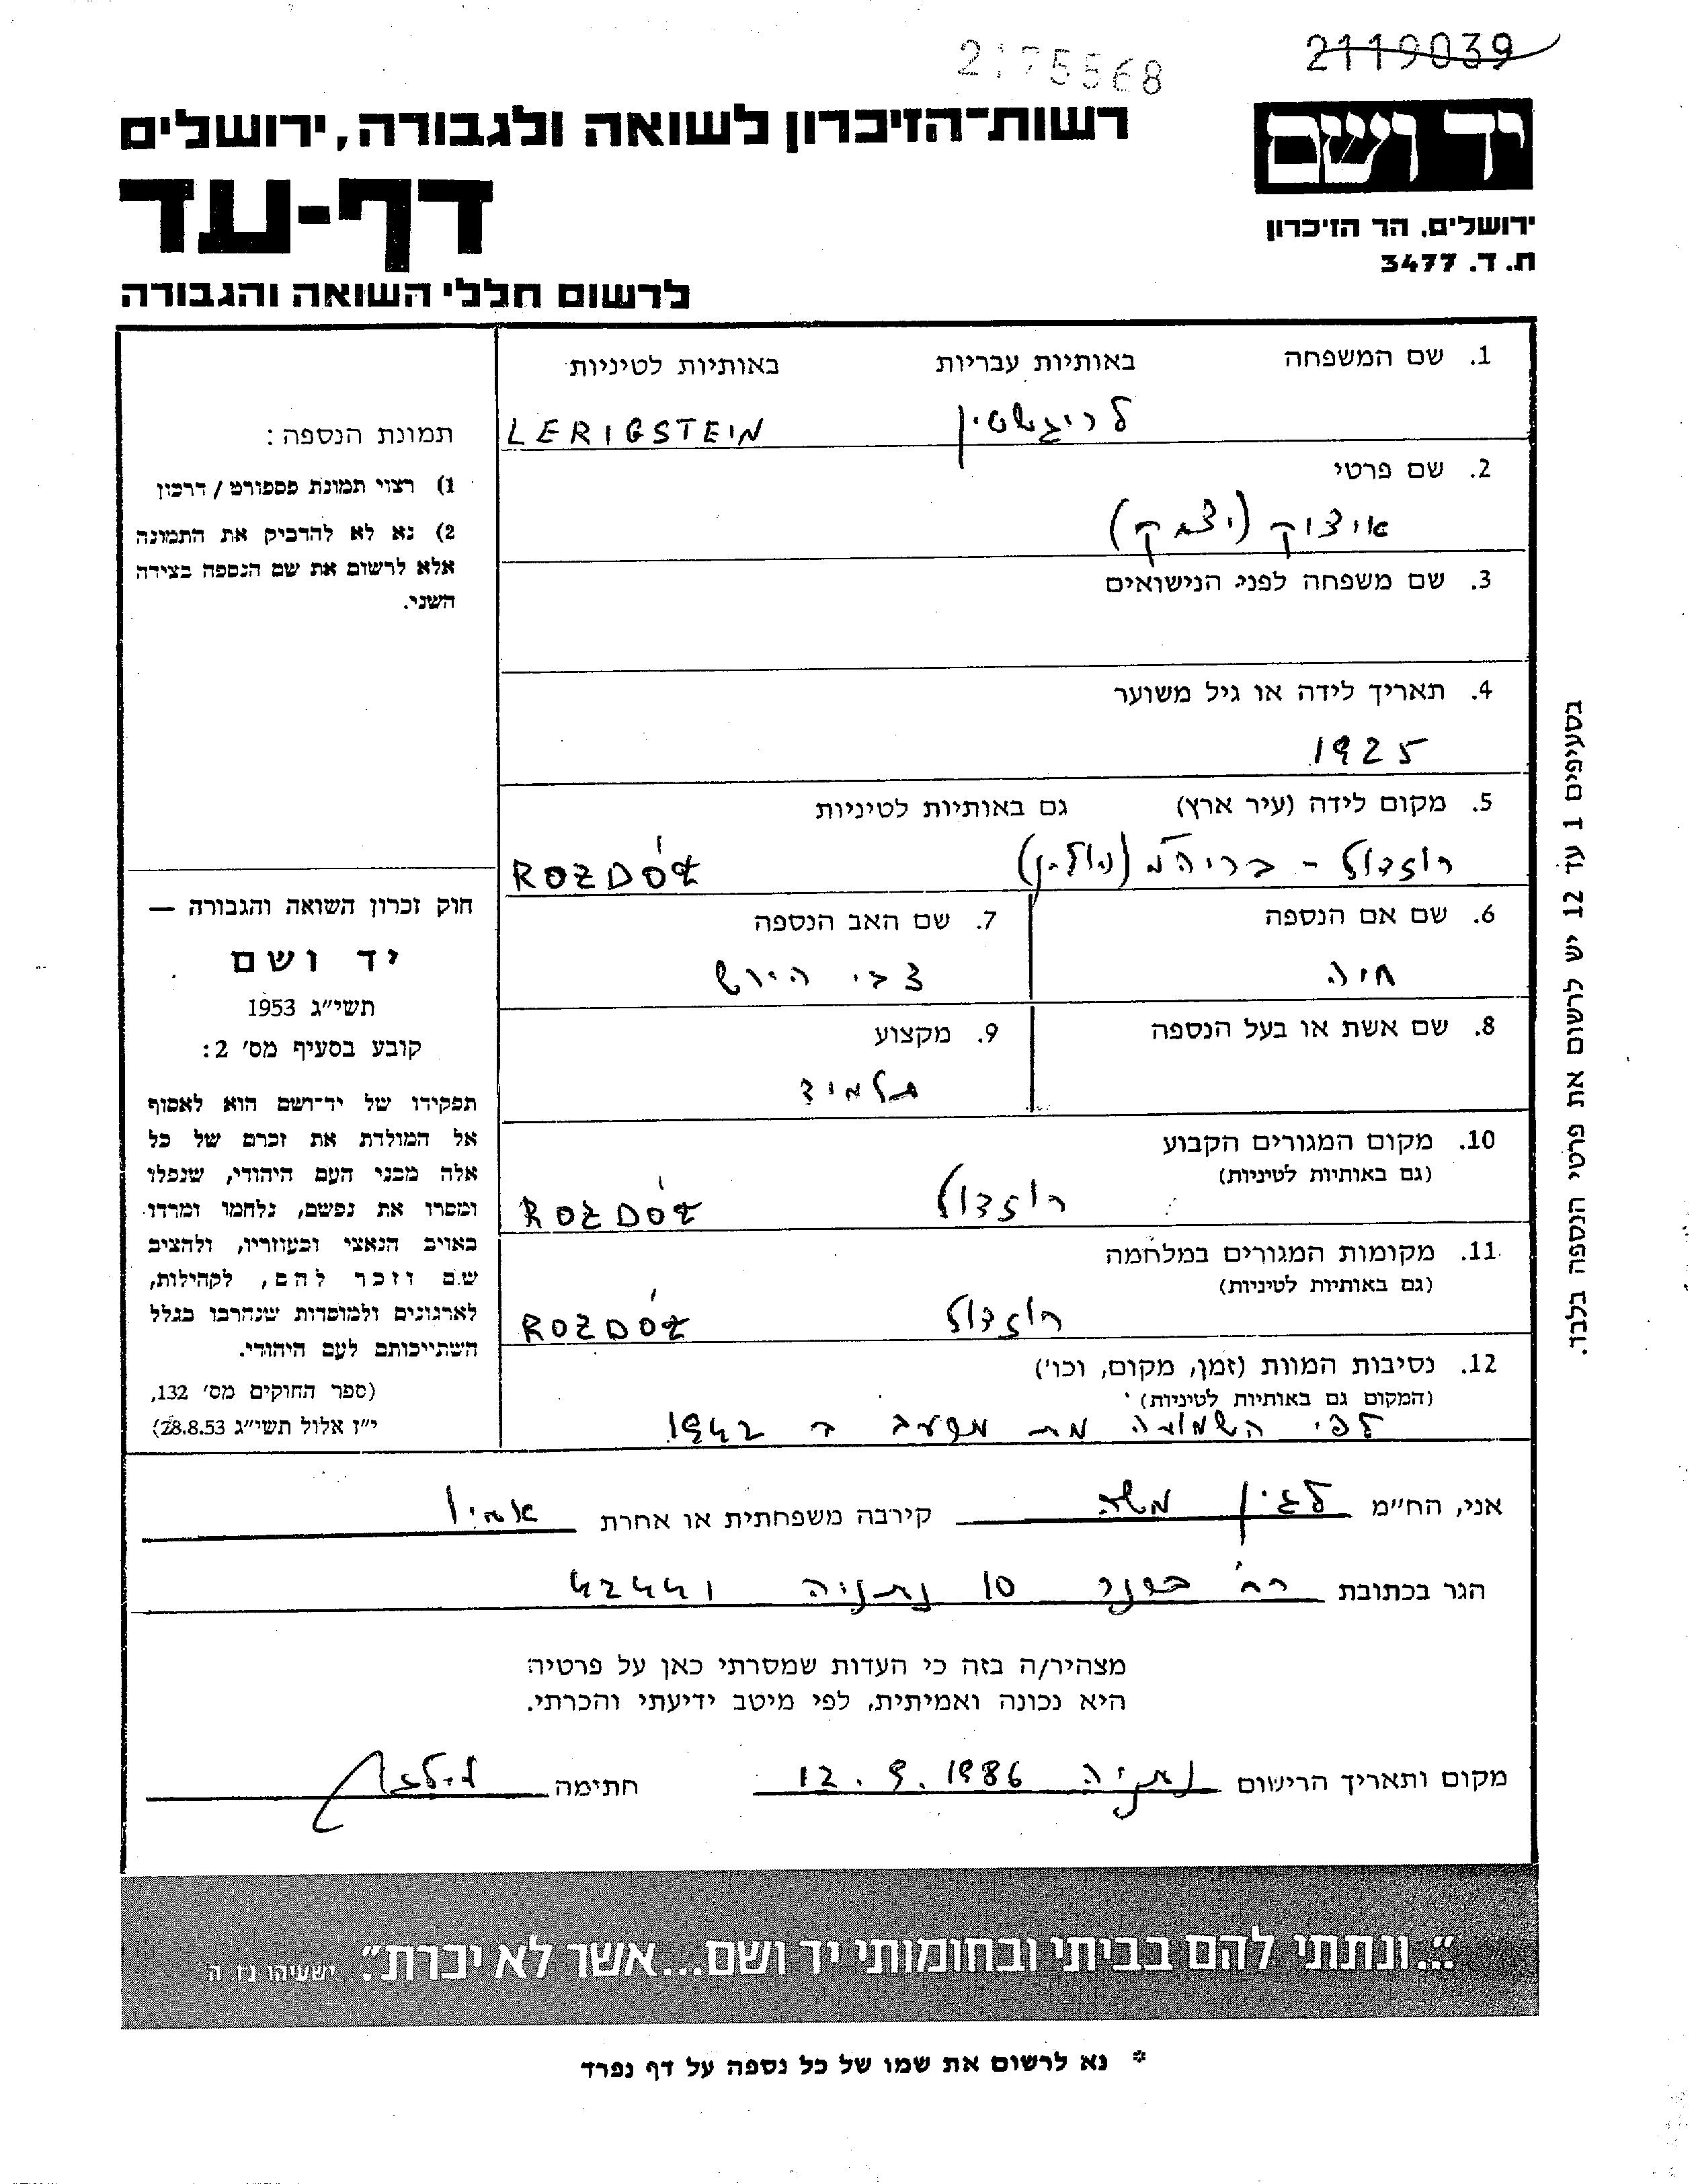 2119039
2175568
יד ושם
ירושלים, הר הזיכרון
ת. ד. 3477
רשות-הזיכרון לשואה ולגבורה, ירושלים
דף-עד
לרשום חללי השואה והגבורה
1. שם המשפחה באותיות עבריות באותיות לטיניות
לריגשטיין LERIGSTEIN
2. שם פרטי
איצוק (יצחק)
3. שם משפחה לפני הנישואים
4. תאריך לידה או גיל משוער
1925
5. מקום לידה (עיר ארץ) גם באותיות לטיניות
רוזדול - בריה"מ (פולין) ROZDÓŁ
6. שם אם הנספה 7. שם האב הנספה
חיה צבי הירש
8. שם אשת או בעל הנספה 9. מקצוע
תלמיד
10. מקום המגורים הקבוע
(גם באותיות לטיניות)
רוזדול ROZDÓŁ
11. מקומות המגורים במלחמה
(גם באותיות לטיניות)
רוזדול ROZDÓŁ
12. נסיבות המוות (זמן, מקום, וכו')
(המקום גם באותיות לטיניות)
לפי השמועה מת מרעב ב 1942
תמונת הנספה:
1) רצוי תמונת פספורט / דרכון
2) נא לא להדביק את התמונה
אלא לרשום את שם הנספה בצידה
השני.
חוק זכרון השואה והגבורה —
יד ושם
תשי״ג 1953
קובע בסעיף מס׳ 2:
תפקידו של יד־ושם הוא לאסוף
אל המולדת את זכרם של כל
אלה מבני העם היהודי, שנפלו
ומסרו את נפשם, נלחמו ומרדו
באויב הנאצי ובעוזריו, ולהציב
שם וזכר להם, לקהילות,
לארגונים ולמוסדות שנהרבו בגלל
השתייכותם לעם היהודי.
(ספר החוקים מס׳ 132,
י״ז אלול תשי״ג 28.8.53)
בסעיפים 1 עד 12 יש לרשום את פרטי הנספה בלבד.
אני, הח״מ לגין משה קירבה משפחתית או אחרת אחיו
הגר בכתובת רח' 10 נתניה 42441
מצהיר/ה בזה כי העדות שמסרתי כאן על פרטיה
היא נכונה ואמיתית, לפי מיטב ידיעתי והכרתי.
מקום ותאריך הרישום נתניה 12.9.1986 חתימה
״...ונתתי להם בביתי ובחומותי יד ושם...אשר לא יכרת״. ישעיהו נו ה
* נא לרשום את שמו של כל נספה על דף נפרד